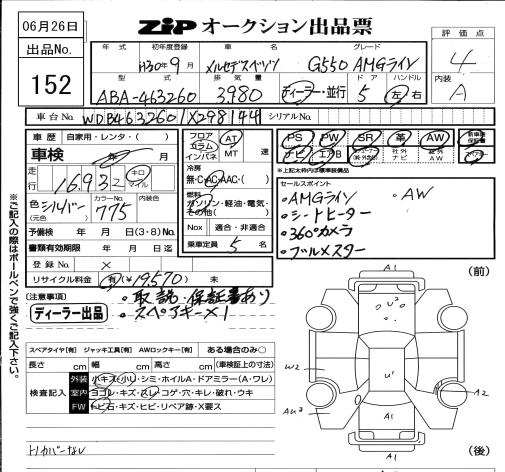 06月26日
ZIP オークション出品票
評価点
4
出品No.
152
年式
初年度登録
車名
グレード
H30年9月
メルセデスベンツ
G550 AMGライン
型式
排気量
ドア
ハンドル
内装
ABA-463260
3980
ディーラー・並行
5
左・右
A
車台No.
WDB4632601X298144
シリアルNo.
車歴
自家用・レンタ・( )
車検
年 月
走行
16,932
キロ
マイル
色
(元色)
シルバー
カラーNo.
775
内装色
予備検 年 月 日(3・8)No.
書類有効期限 年 月 日迄
登録No. ×
リサイクル料金 有(¥19,570) 未
フロア
コラム
インパネ
AT
MT
速
冷房
無・C・AC・AAC・( )
燃料
ガソリン・軽油・電気・
その他( )
Nox
適合・非適合
乗車定員 5 名
PS
PW
SR
革
AW
ナビ
エアB
社外
ナビ
社外
AW
新車時
保証書
*上記太枠内は標準装備品
セールスポイント
・AMGライン
・AW
・シートヒーター
・360°カメラ
・ブルメスター
(注意事項)
・取説・保証書あり
ディーラー出品
・スペアキー×1
スペアタイヤ[有] ジャッキ工具[有] AWロックキー[有]
ある場合のみ○
長さ cm 幅 cm 高さ cm (車検証上の寸法)
検査記入
外装
小キズ・小凹・シミ・ホイルA・ドアミラー(A・ワレ)
室内
ヨゴレ・キズ・スレ・コゲ・穴・キレ・破れ・ウキ
FW
トビ石・キズ・ヒビ・リペア跡・X要ス
トノカバーなし
※ご記入の際はボールペンで強くご記入下さい。
(前)
A1
U3
W2
U1
A2
AU3
A1
A1
(後)